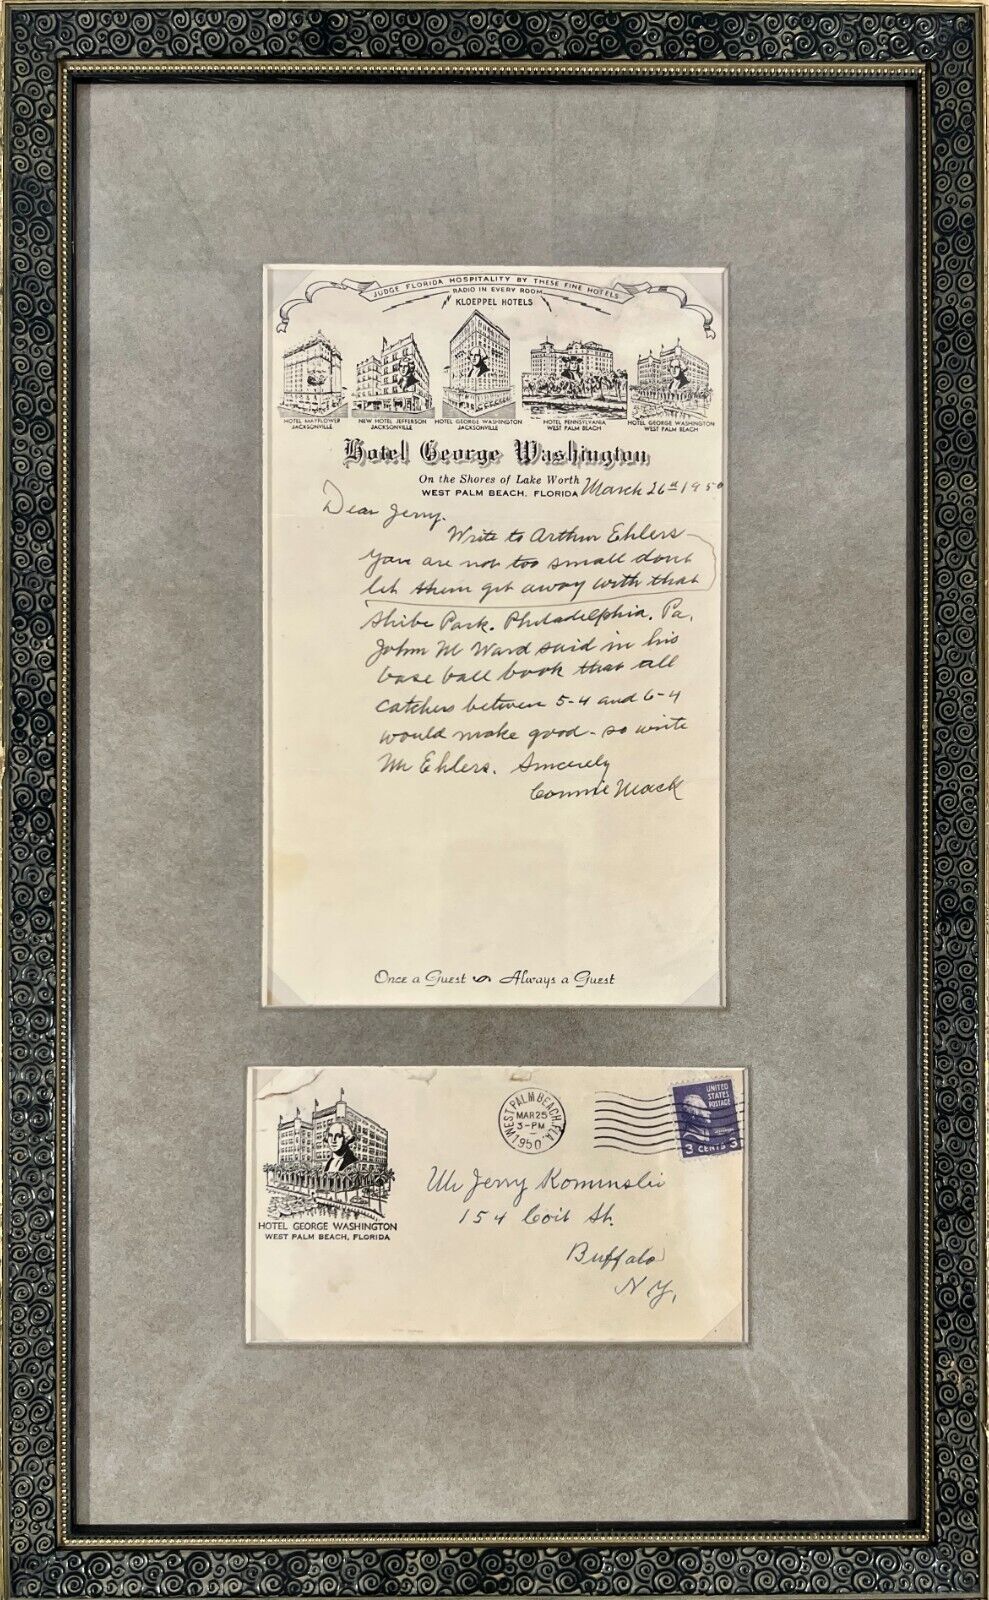 JUDGE FLORIDA HOSPITALITY BY THESE FINE HOTELS
RADIO IN EVERY ROOM
KLOEPPEL HOTELS
HOTEL MAYFLOWER
JACKSONVILLE
NEW HOTEL JEFFERSON
JACKSONVILLE
HOTEL GEORGE WASHINGTON
JACKSONVILLE
HOTEL PENNSYLVANIA
WEST PALM BEACH
HOTEL GEORGE WASHINGTON
WEST PALM BEACH
Hotel George Washington
On the Shores of Lake Worth
WEST PALM BEACH, FLORIDA March 26th 1950
Dear Jerry.
Write to Arthur Ehlers
you are not too small dont
let them get away with that
Shibe Park. Philadelphia. Pa.
John M Ward said in his
base ball book that all
catchers between 5-4 and 6-4
would make good - so write
Mr Ehlers. Sincerely
Connie Mack
Once a Guest Always a Guest
WEST PALM BEACH, FLA.
MAR 25
3-PM
1950
UNITED
STATES
POSTAGE
3 CENTS 3
HOTEL GEORGE WASHINGTON
WEST PALM BEACH, FLORIDA
Mr Jerry Kominski
154 Coit St.
Buffalo
N Y.